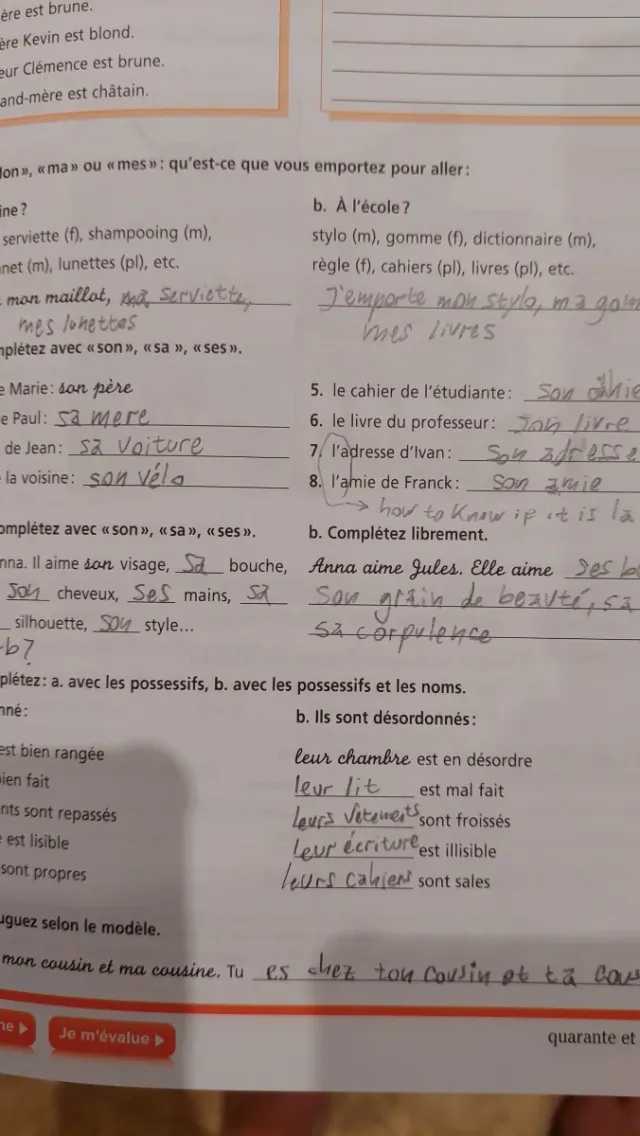 ère est brune.
ère Kevin est blond.
eur Clémence est brune.
and-mère est châtain.
on», «ma» ou «mes»: qu'est-ce que vous emportez pour aller:
ine?
serviette (f), shampooing (m),
net (m), lunettes (pl), etc.
mon maillot, ma serviette,
mes lunettes
b. À l'école?
stylo (m), gomme (f), dictionnaire (m),
règle (f), cahiers (pl), livres (pl), etc.
J'emporte mon stylo, ma gom
mes livres
mplétez avec «son», «sa», «ses».
e Marie: son père
e Paul: sa mere
de Jean: sa voiture
la voisine: son vélo
5. le cahier de l'étudiante: son cahie
6. le livre du professeur: son livre
7. l'adresse d'Ivan: son adresse
8. l'amie de Franck: son amie
→ how to know if it is la
omplétez avec «son», «sa», «ses».
nna. Il aime son visage, sa bouche,
son cheveux, ses mains, sa
silhouette, son style...
b?
b. Complétez librement.
Anna aime Jules. Elle aime ses b
son grain de beauté, sa
sa corpulence
plétez: a. avec les possessifs, b. avec les possessifs et les noms.
nné:
est bien rangée
bien fait
nts sont repassés
est lisible
sont propres
b. Ils sont désordonnés:
leur chambre est en désordre
leur lit est mal fait
leurs vêtements sont froissés
leur écriture est illisible
leurs cahiers sont sales
uguez selon le modèle.
mon cousin et ma cousine. Tu es chez ton cousin et ta cous
ne
Je m'évalue
quarante et